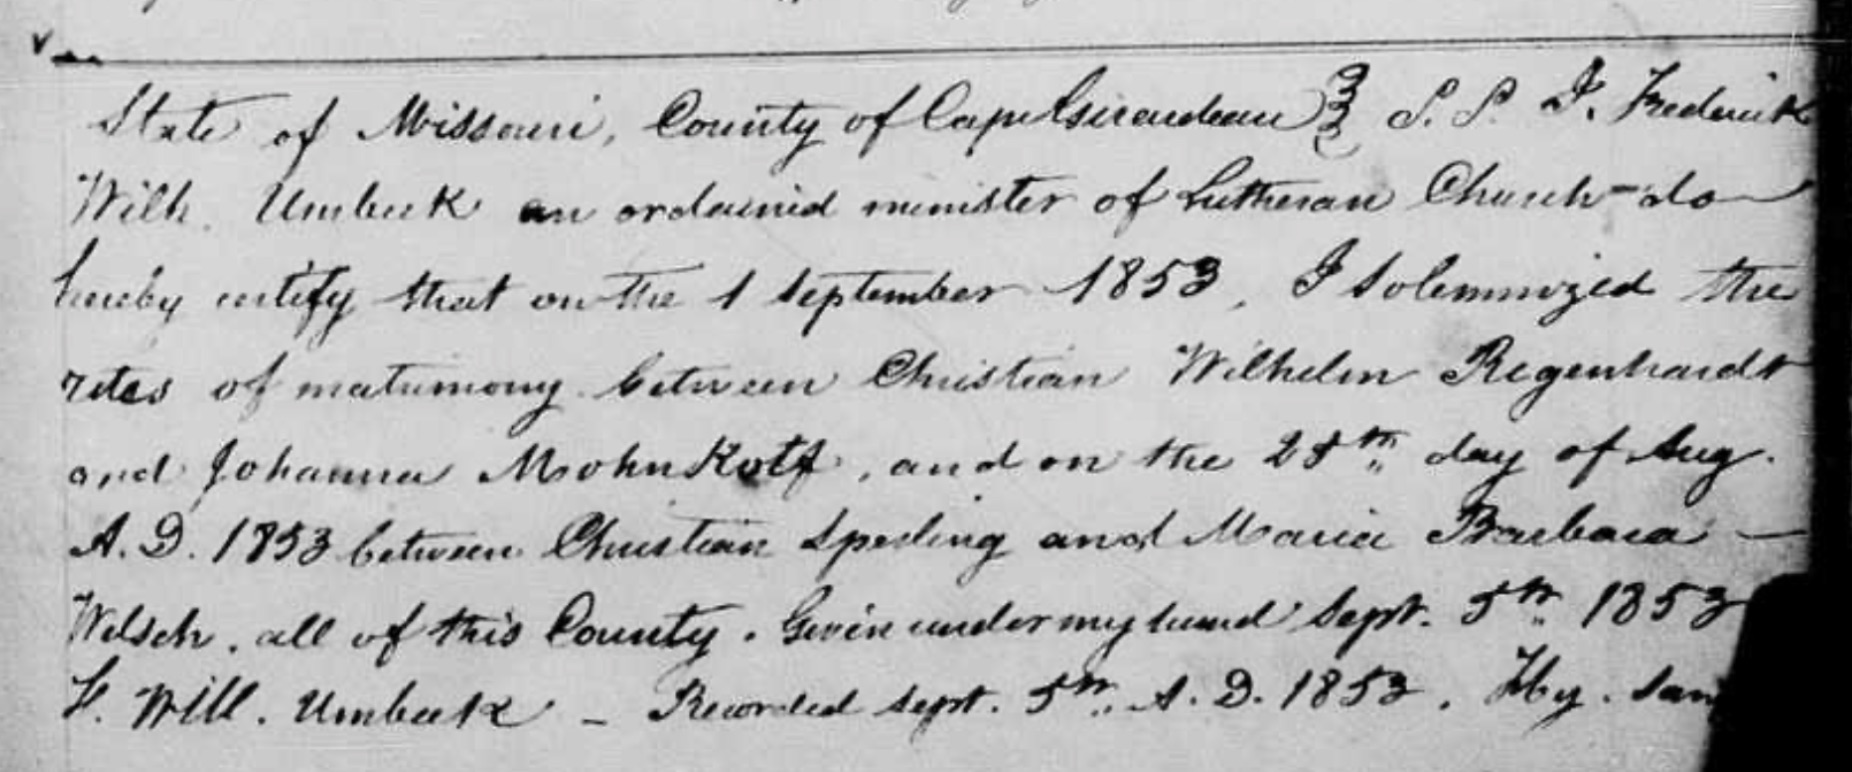 State of Missouri, County of Cape Girardeau } S. S. I, Frederick
Wilh. Umbeck an ordained minister of Lutheran Church - do
hereby certify that on the 1 September 1853, I Solemnized the
rites of matrimony between Christian Wilhelm Regenhardt
and Johanna MohnKott, and on the 28th day of Aug.
A. D. 1853 between Christian Speding and Maria Barbara —
Welsch. all of this County. Given under my hand Sept. 5th 1853
F. Will. Umbeck - Recorded Sept. 5th A. D. 1853.